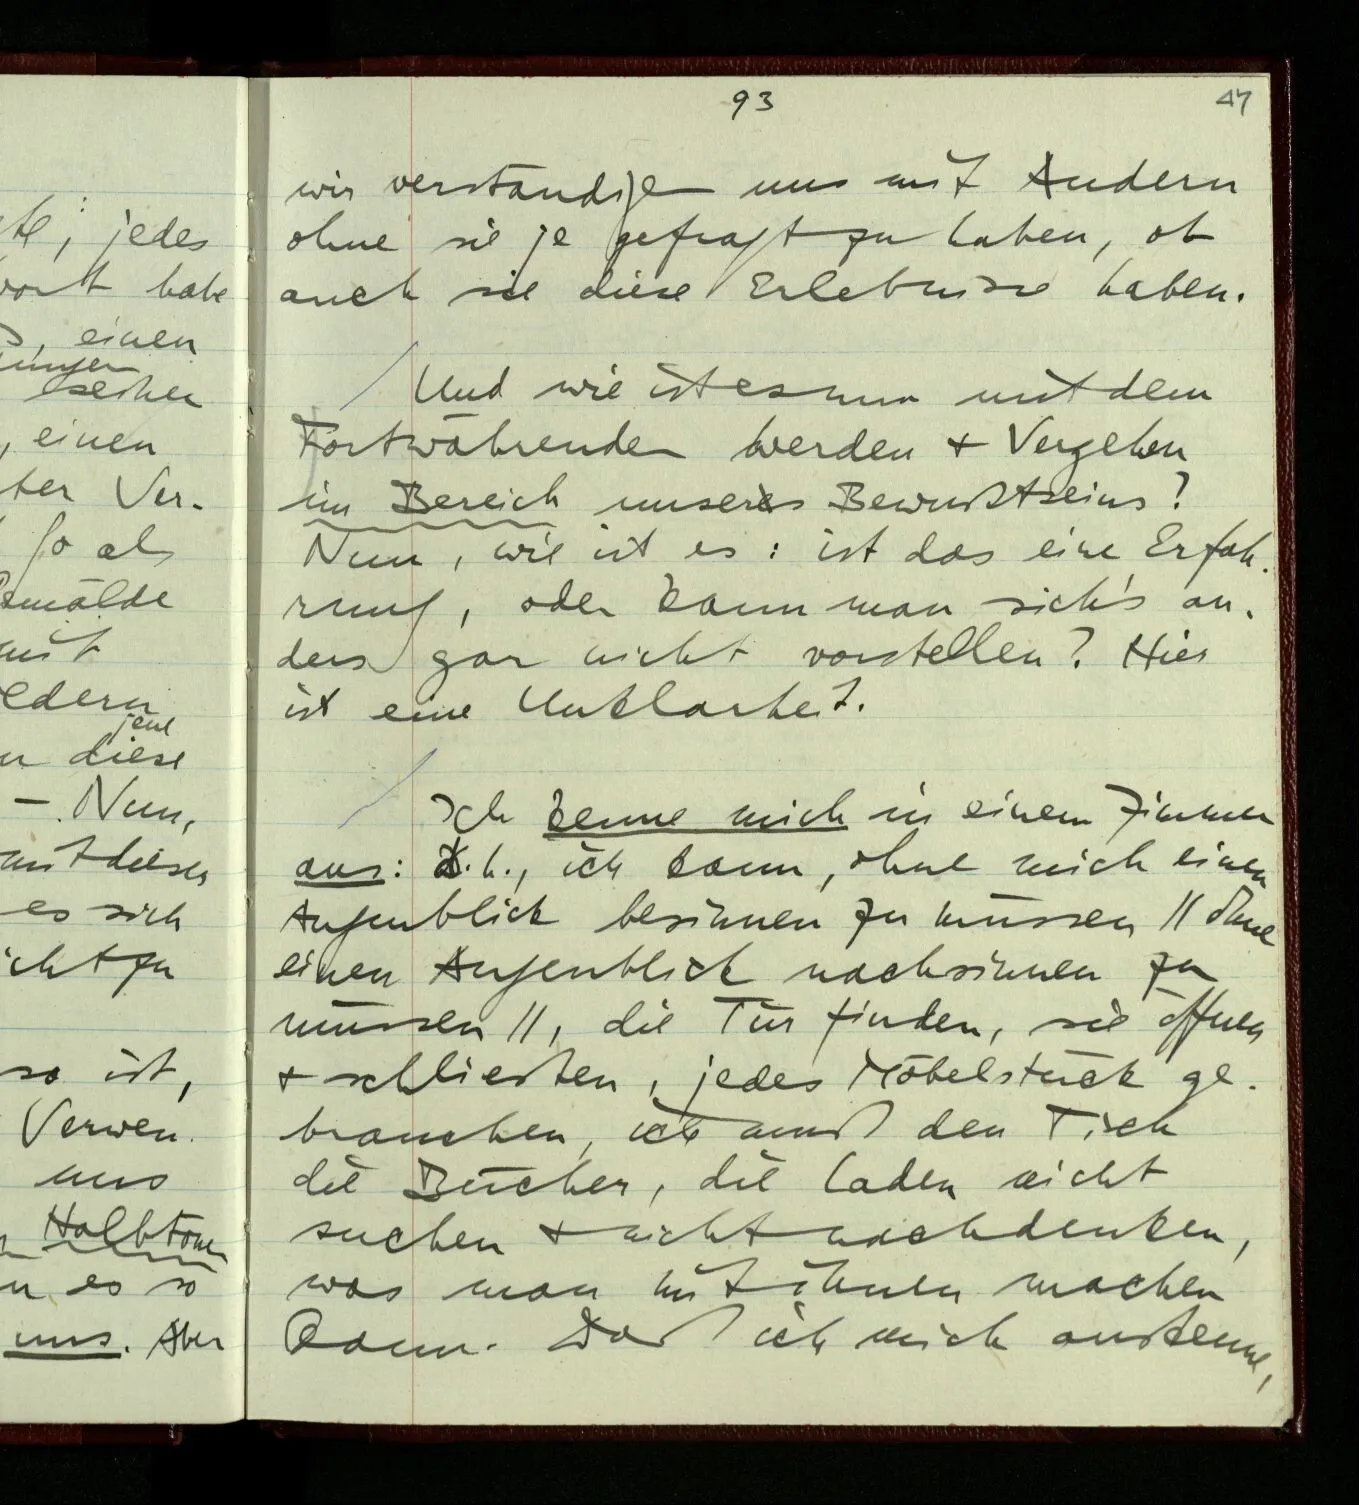 te; jedes
wort habe
, einen
seiner
, einen
ter Ver-
so als
Gemälde
mit
edern
jene
n diese
– Nun,
mit dieser
es sich
icht zu
so ist,
Verwen-
uns
Halbtönen
n es so
uns. Aber
93
47
wir verständigen uns mit Andern
ohne sie je gefragt zu haben, ob
auch sie diese Erlebnisse haben.
Und wie ist es nun mit dem
Fortwährenden Werden + Vergehen
im Bereich unseres Bewußtseins?
Nun, wie ist es: ist das eine Erfah-
rung, oder kann man sich's an-
ders gar nicht vorstellen? Hier
ist eine Unklarheit.
Ich kenne mich in einem Zimmer
aus: d.h., ich kann, ohne mich einen
Augenblick besinnen zu müssen // ohne
einen Augenblick nachsinnen zu
müssen //, die Tür finden, sie öffnen
+ schließen, jedes Möbelstück ge-
brauchen, ich muß den Tisch
die Bücher, die Laden nicht
suchen + nicht nachdenken,
was man mit ihnen machen
kann. Daß ich mich auskenne,